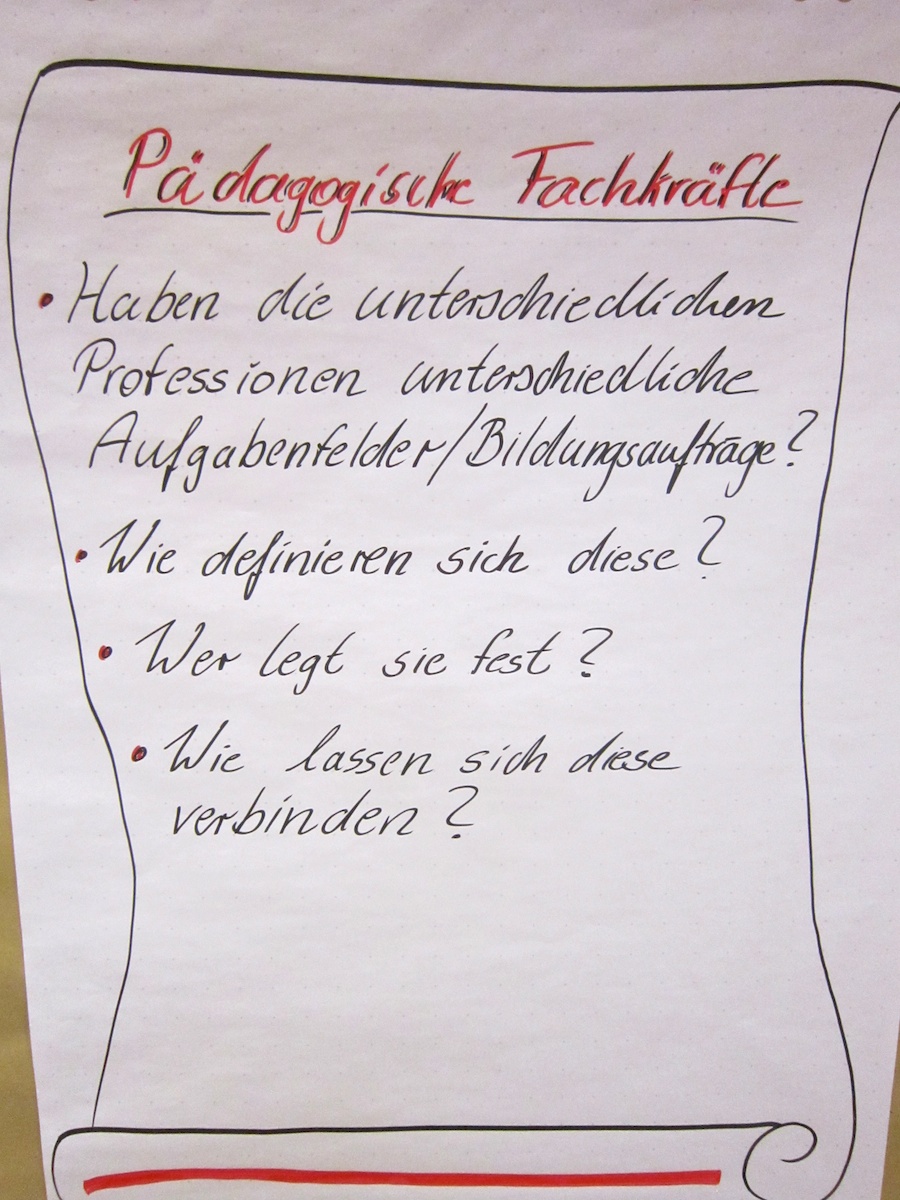 Pädagogische Fachkräfte
• Haben die unterschiedlichen
Professionen unterschiedliche
Aufgabenfelder/Bildungsaufträge?
• Wie definieren sich diese?
• Wer legt sie fest?
• Wie lassen sich diese
verbinden?